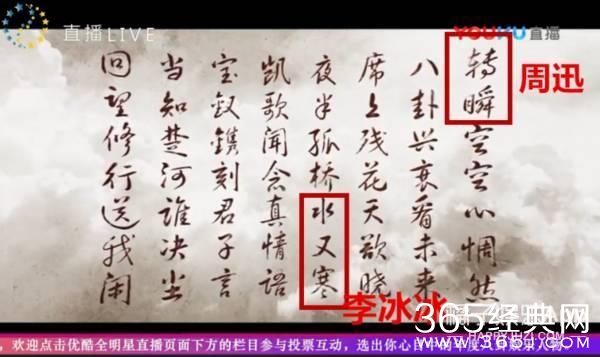 直播LIVE
YOUKU直播
转瞬空空心惆然
八卦兴衰看未来
席上残花天欲晓
夜半孤桥水又寒
凯歌闻念真情语
宝钗镌刻君子言
当知楚河谁决坐
回望修行送我闲
周迅
李冰冰
365经典网
，欢迎点击优酷全明星直播页面下方的栏目参与投票互动，选出你心目中的年度